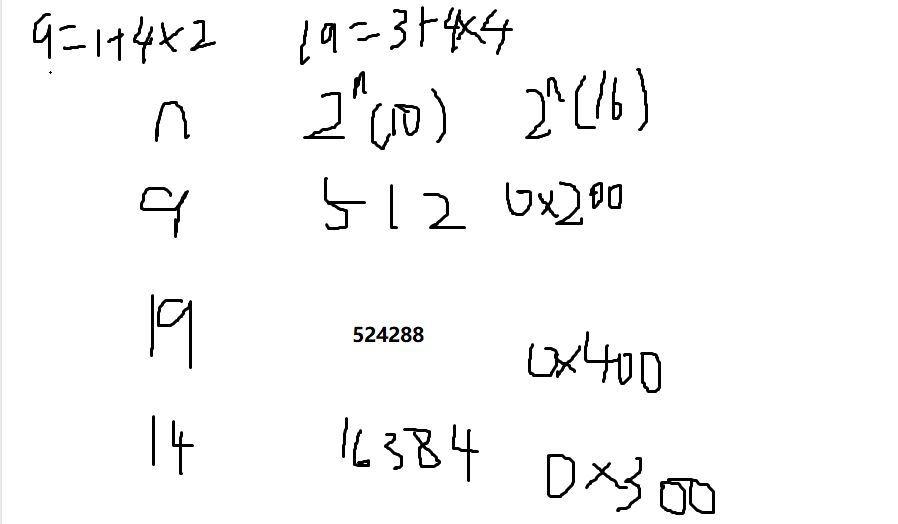 9=1+4×2 19=3+4×4
n 2ⁿ(10) 2ⁿ(16)
9 512 0x200
19 524288 0x400
14 16384 0x300